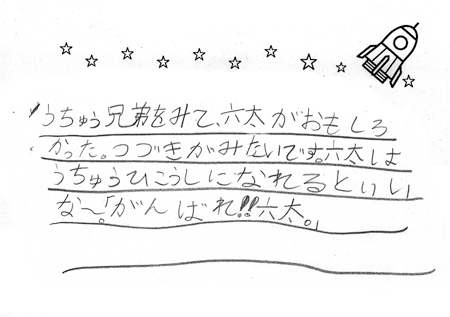 うちゅう兄弟をみて、六太がおもしろ
かった。つづきがみたいです。六太は
うちゅうひこうしになれるといい
な～。「がんばれ!!六太。」